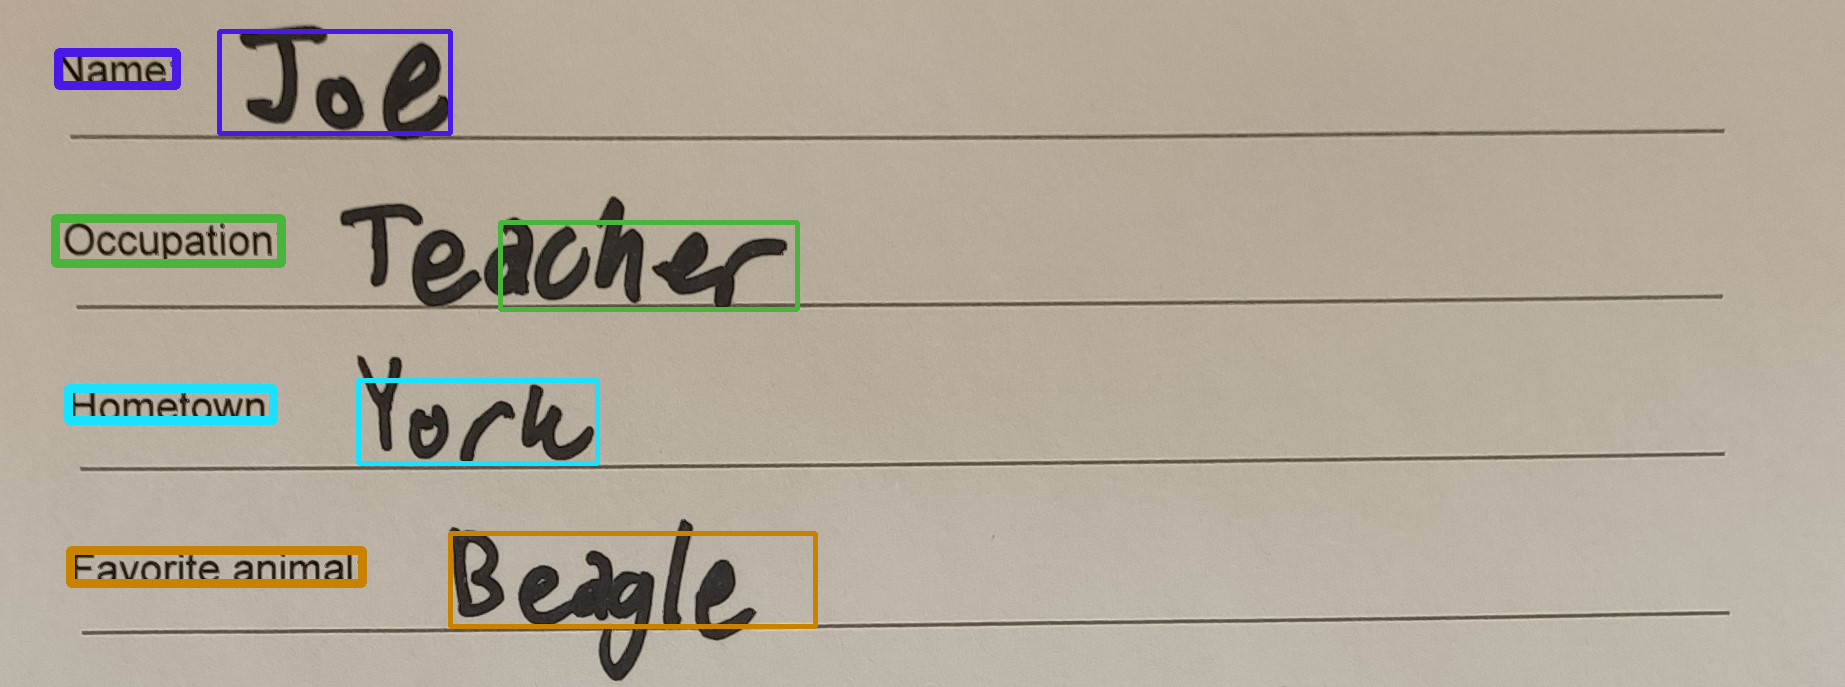 Name: Joe
Occupation Teacher
Hometown York
Favorite animal Beagle